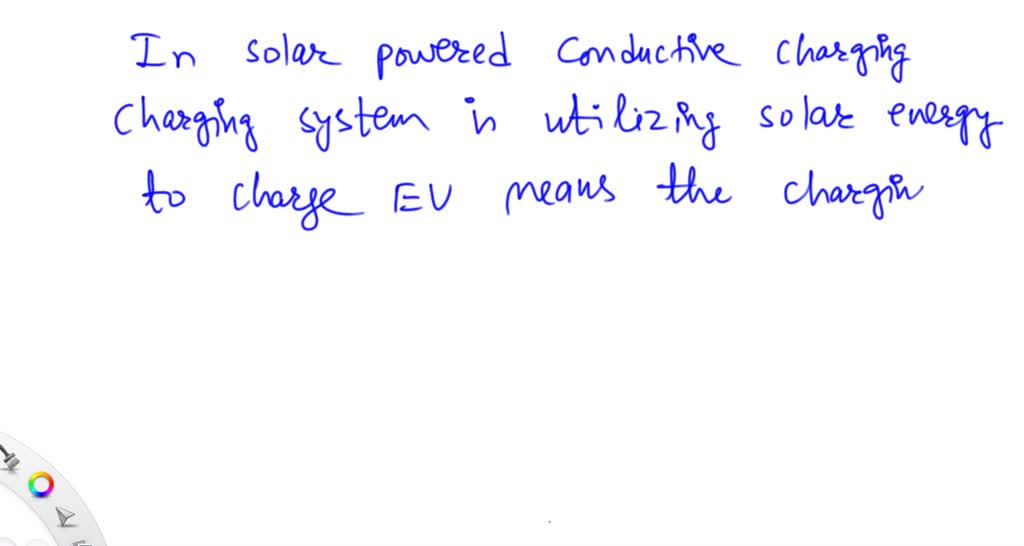 In solar powered conductive charging
charging system is utilizing solar energy
to charge EV means the chargin